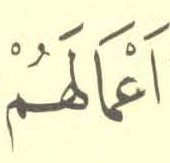 اَعْمَالَهُمْ